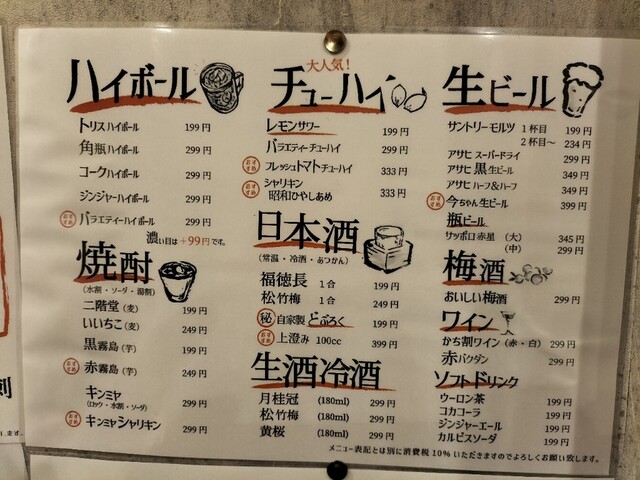 ハイボール
トリスハイボール 199円
角瓶ハイボール 299円
コークハイボール 299円
ジンジャーハイボール 299円
おすすめ バラエティーハイボール 299円
濃い目は+99円です。
焼酎
(水割・ソーダ・湯割)
二階堂(麦) 199円
いいちこ(麦) 249円
黒霧島(芋) 199円
おすすめ 赤霧島(芋) 249円
キンミヤ
(ロック・水割・ソーダ) 299円
おすすめ キンミヤシャリキン 299円
大人気!
チューハイ
レモンサワー 199円
バラエティーチューハイ 299円
おすすめ フレッシュトマトチューハイ 333円
おすすめ シャリキン
昭和ひやしあめ 333円
日本酒
(常温・冷酒・あつかん)
福徳長 1合 199円
松竹梅 1合 249円
㊙ 自家製どぶろく 199円
おすすめ 上澄み 100cc 399円
生酒冷酒
月桂冠 (180ml) 299円
松竹梅 (180ml) 299円
黄桜 (180ml) 299円
生ビール
サントリーモルツ 1杯目 199円
2杯目〜 234円
アサヒ スーパードライ 299円
アサヒ 黒生ビール 349円
アサヒ ハーフ&ハーフ 349円
おすすめ 今ちゃん生ビール 399円
瓶ビール
サッポロ赤星 (大) 345円
(中) 299円
梅酒
おいしい梅酒 299円
ワイン
かち割ワイン(赤・白) 299円
赤バクダン 299円
ソフトドリンク
ウーロン茶 199円
コカコーラ 199円
ジンジャーエール 199円
カルピスソーダ 199円
メニュー表記とは別に消費税10%いただきますのでよろしくお願い致します。